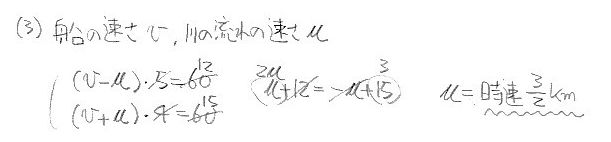 (3) 船の速さ v, 川の流れの速さ u
(v-u)・5=60 12
(v+u)・4=60 15
2u u+12=-u+15 3
u=時速 3/2 km